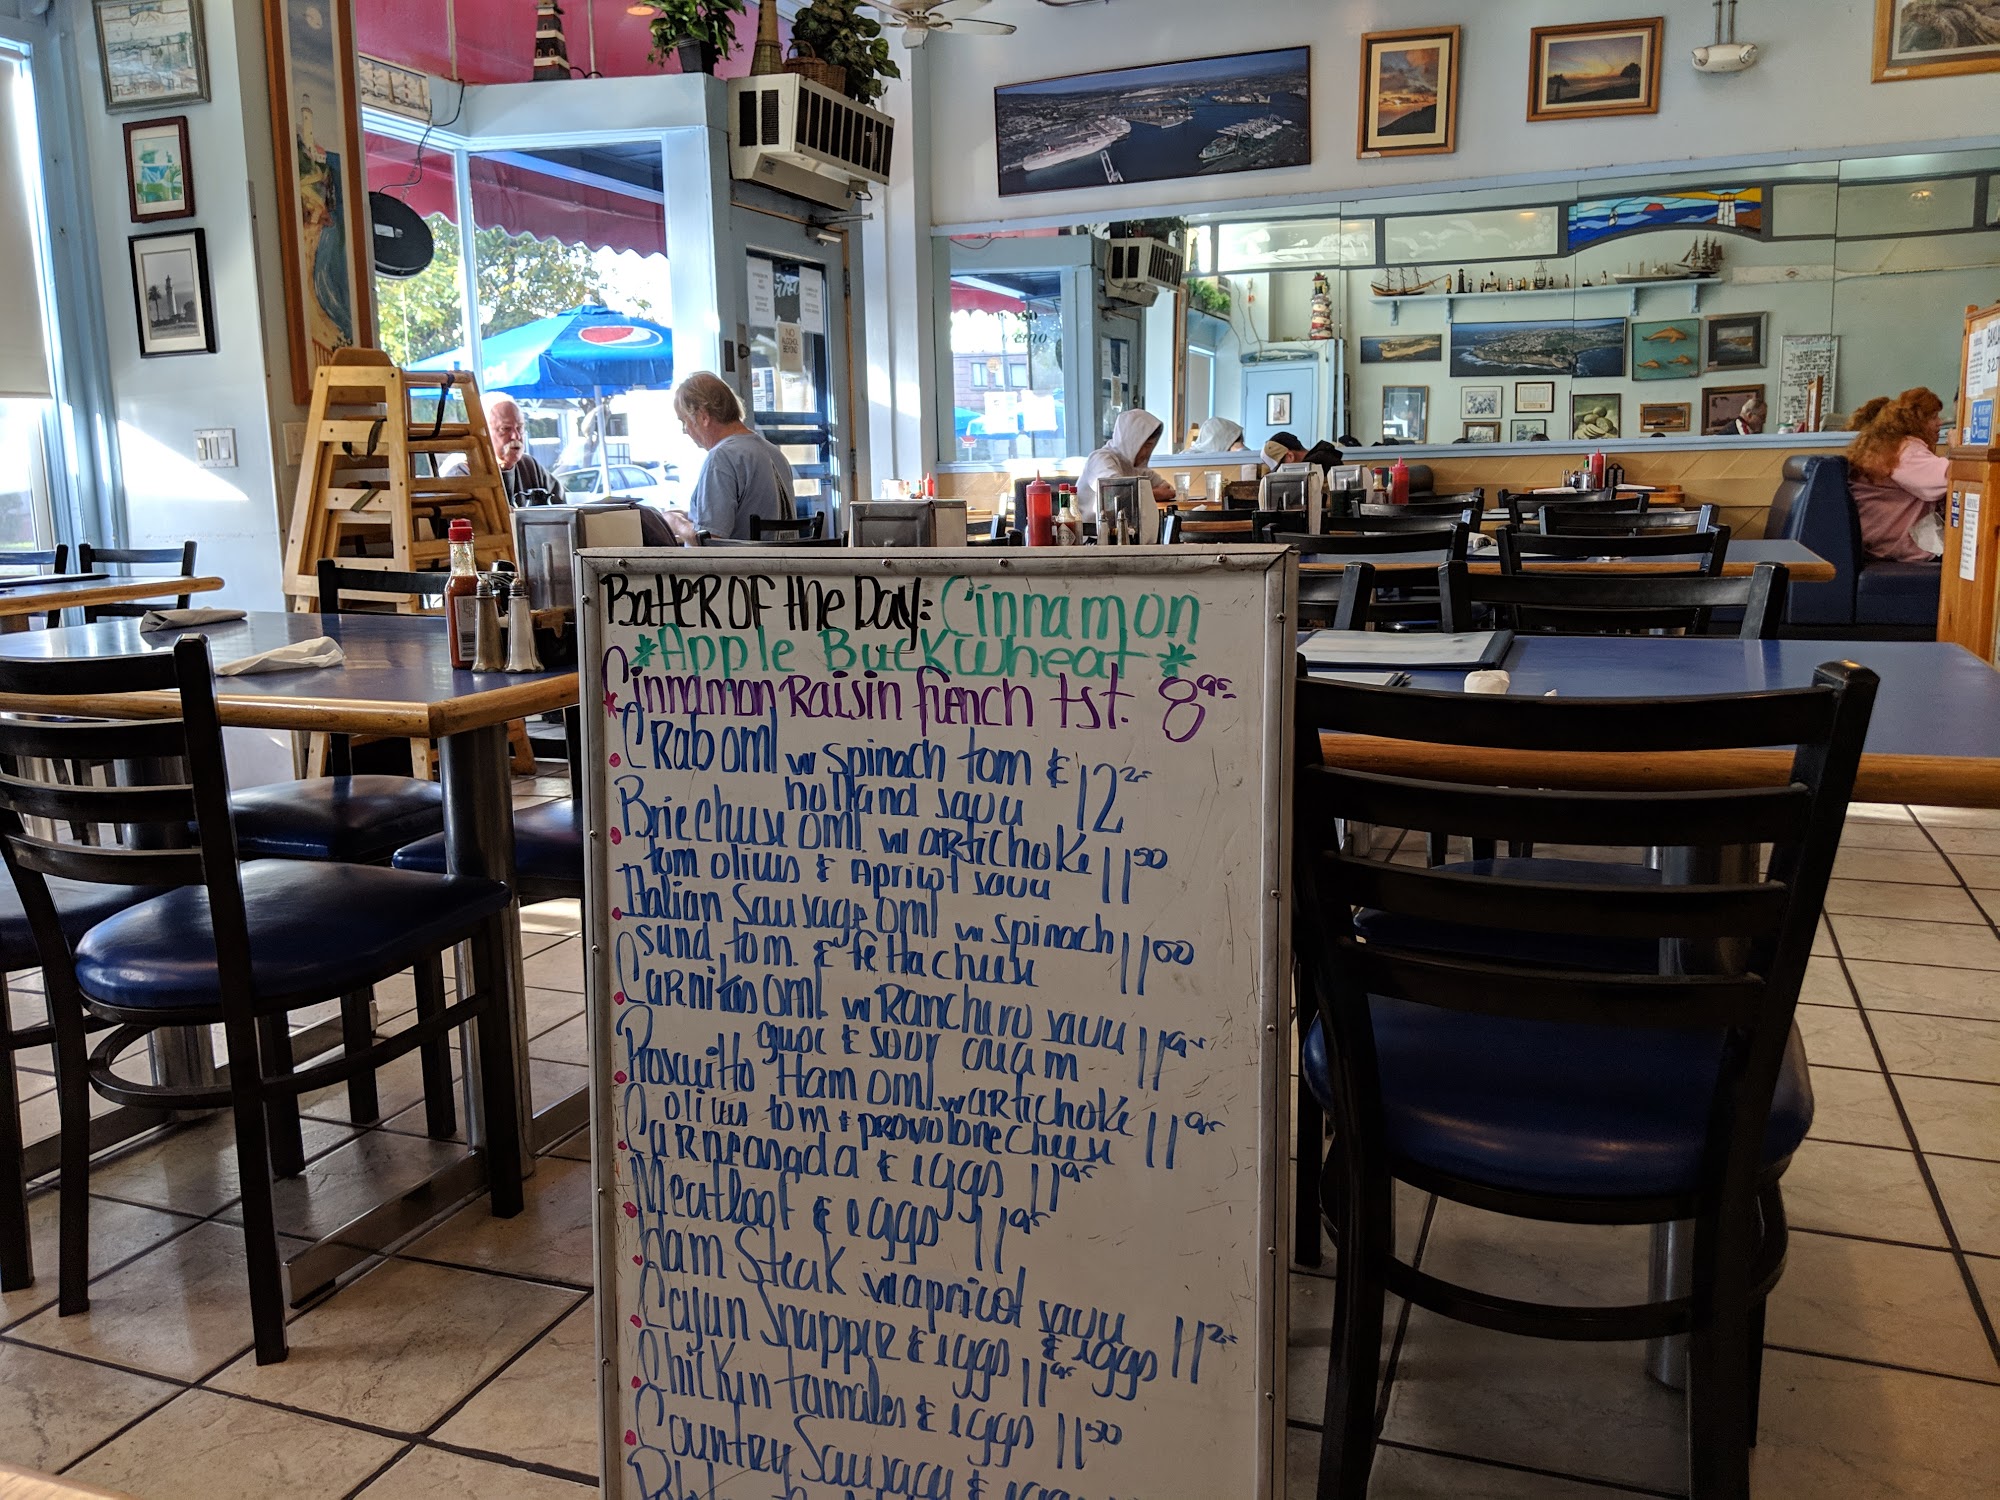 Batter of the Day: Cinnamon
*Apple Buckwheat*
*Cinnamon Raisin french tst. 8 95
• Crab oml w spinach tom & 12 25
holland sauce
• Brie cheese oml. w artichoke 11 50
tom olives & Apricot sauce
• Italian Sausage oml w spinach 11 50
sund. tom. & fetta cheese
• Carnitas oml. w Ranchero sauce 11 95
guac & sour cream
• Prosquitto Ham oml. w artichoke 11 95
olives tom & provolone cheese
• Carne asada & eggs 11 95
• Meatloaf & eggs 11 95
• Ham Steak w apricot sauce 11 25
& eggs
• Cajun Snapper & eggs 11 95
• Chicken tamales & eggs 11 50
• Country Sausage & eggs
NO
ALCOHOL
BEYOND